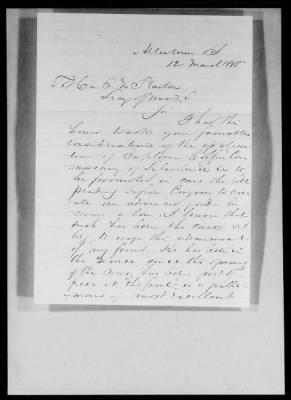 12 March 1865
To Hon E. M. Stanton
Secy of War
Sir
I have the
honor to ask your favorable
consideration of the applica-
tion of Captain
of Subsistence &c to
be promoted in case the bill
pending before Congress to cre-
ate an advanced grade be-
come a law. I learn that
such has been the case, &
beg to urge the advancement
of my friend. He has been in
the service since the opening
of the War, has been post
at the front, is a gentle-
man of most excellent